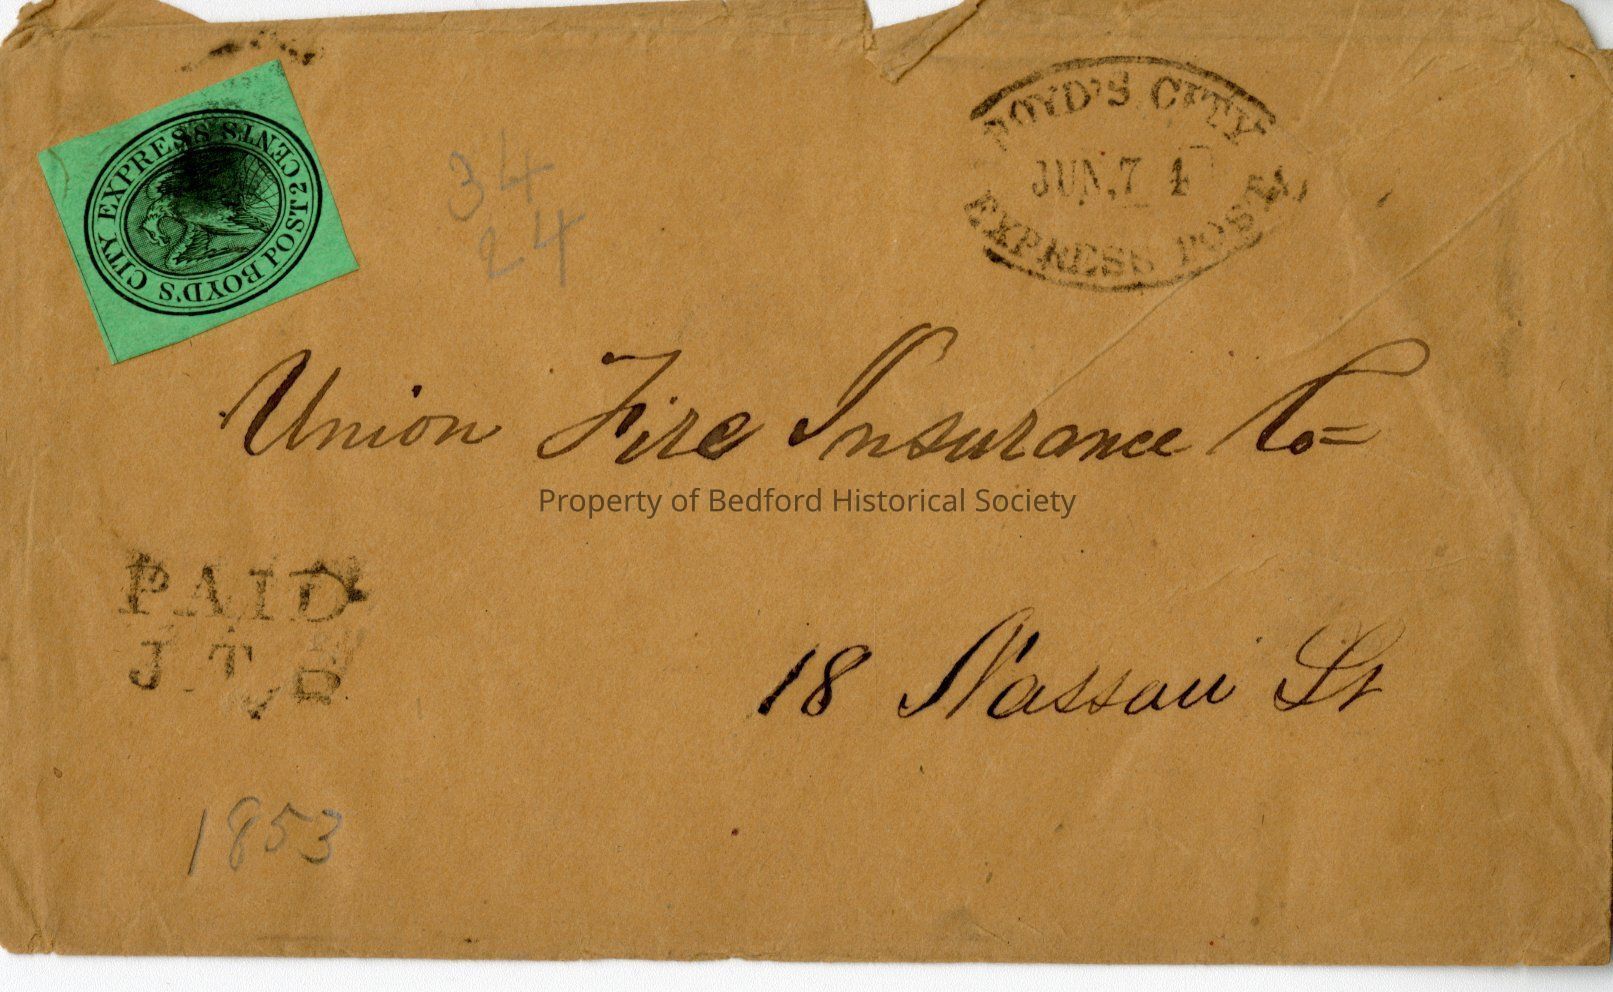 BOYD'S CITY EXPRESS POST 2 CENTS
34
24
BOYD'S CITY
JUN.7 4
EXPRESS POST
Union Fire Insurance Co=
Property of Bedford Historical Society
PAID
J.T.B
18 Nassau St
1853